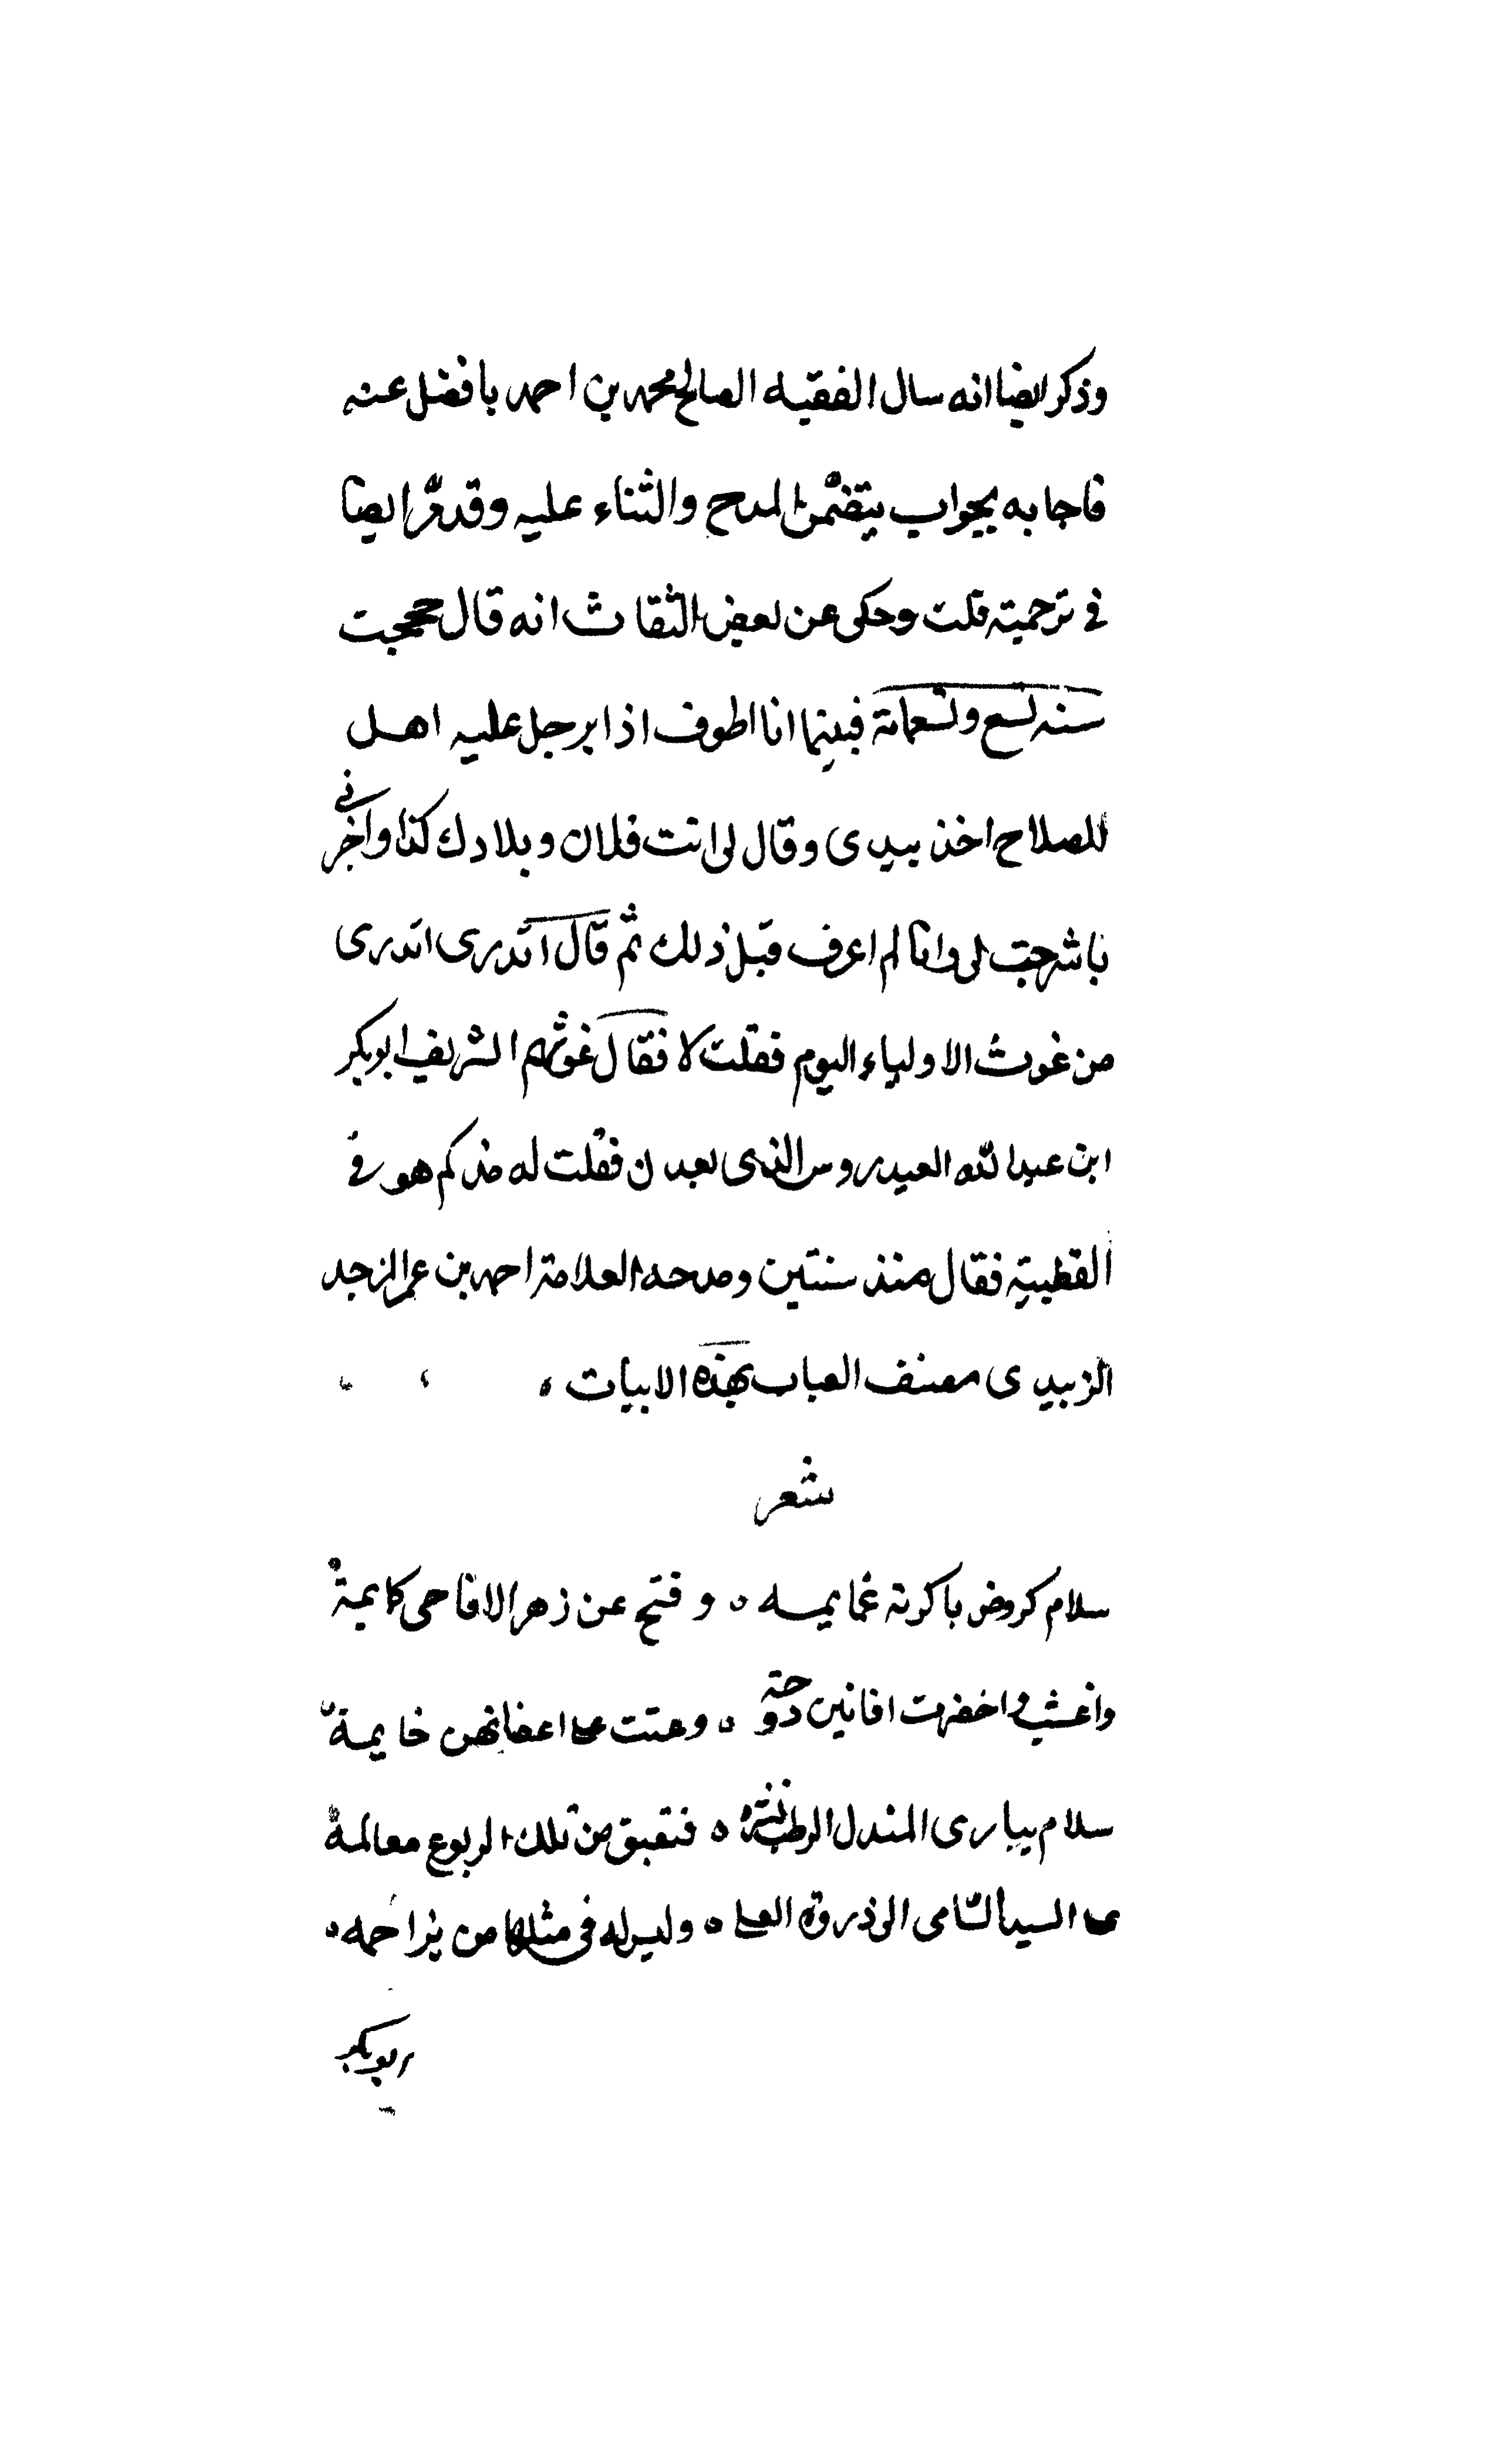 وذكر ايضا انه سال الفقيه الصالح محمد بن احمد بافضل عنه
فاجابه بجواب يتضمن المدح والثناء عليه وقد مر ايضا
في ترجمته قلت وحكى عن بعض الثقات انه قال حججت
سنة تسع وتسعمائة فبينما انا اطوف اذا برجل عليه اهل
للصلاح اخذ بيدي وقال لي انت فلان وبلادك كذا واخرني
باشرجت لي وانا لم اعرف قبل ذلك ثم قال اتدرى اتدرى
من غوث الاولياء اليوم فقلت لا فقال غوثهم الشريف ابو بكر
ابن عبدالله العيدروس الذى بعدن فقلت له منذ كم هو في
القطبية فقال منذ سنتين ومدحه العلامة احمد بن عمر المزجد
الزبيدى مصنف العباب بهذه الابيات
شعر
سلام كروض باكرته غمايمه ه وفتح عن زهر الاقاحى كمايمة
واخضرت افانين دوحته ه وغنت على اغصانهن حمايمة
سلام يبارى المندل الرطب نشره ه فتعبق من تلك الربوع معالمة
على السيد السامى الى ذروة العلا ه وليس له في مثلها من يزاحمه ه
ابو بكر